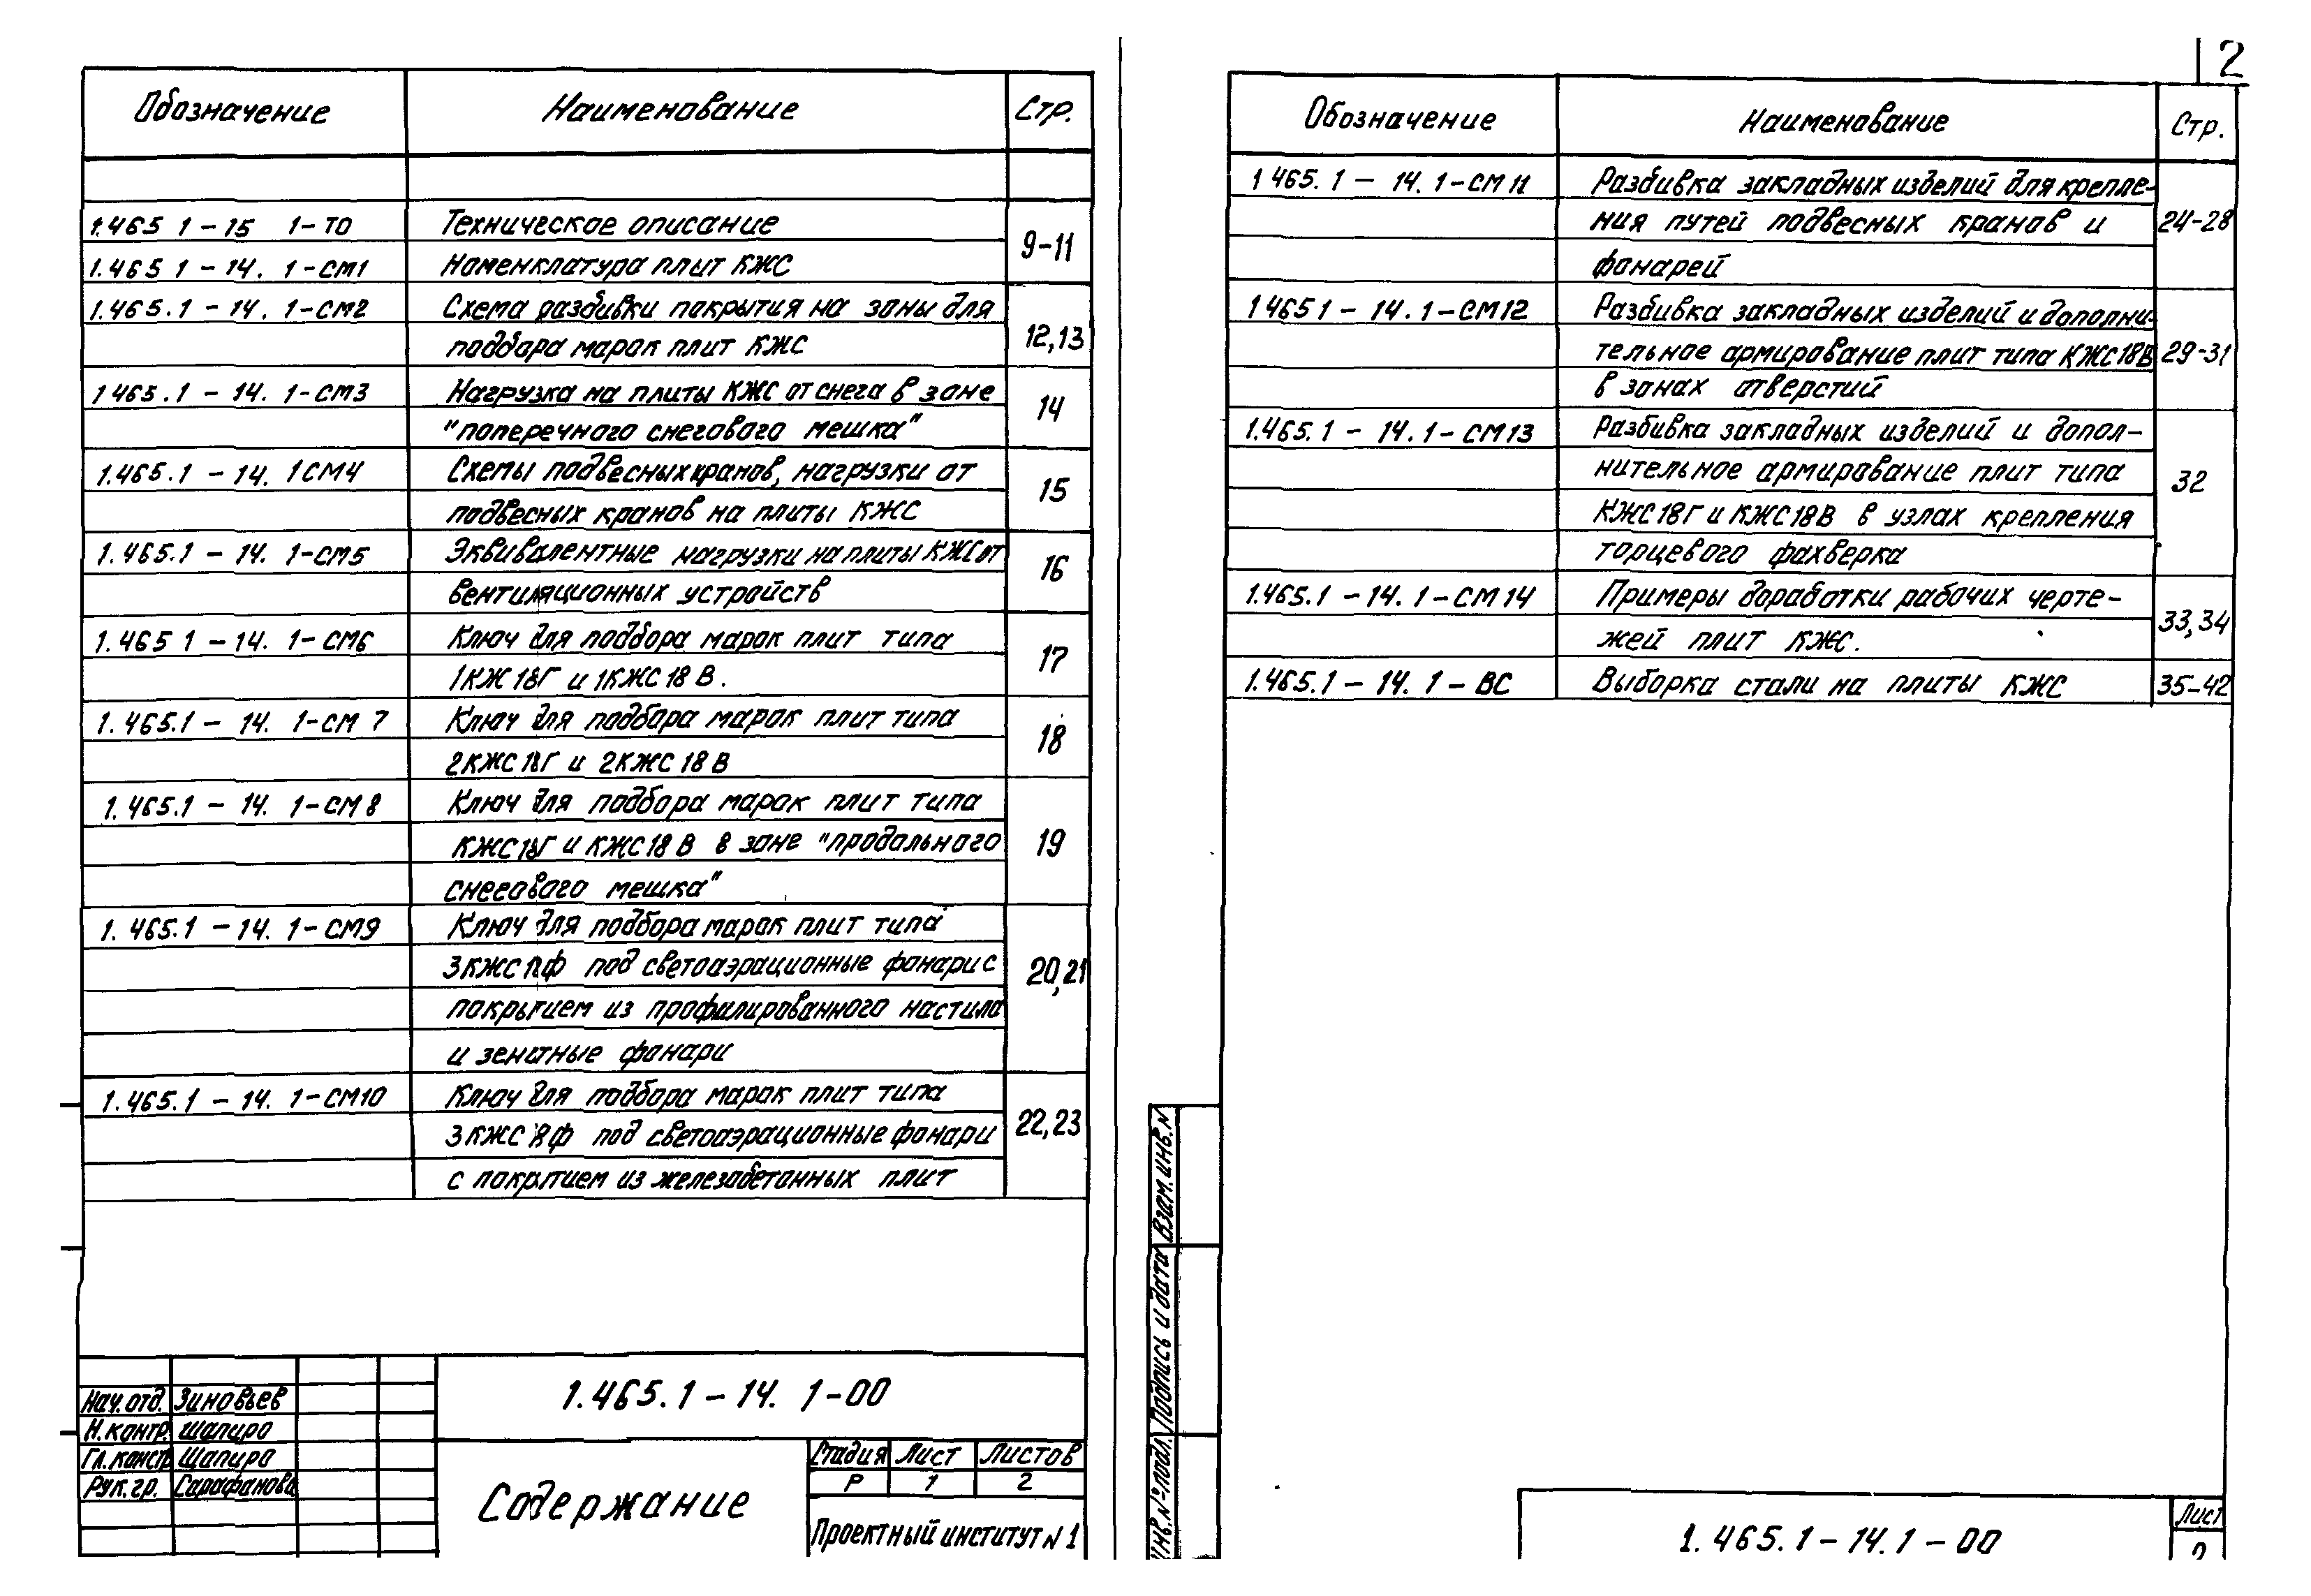 2
Обозначение Наименование Стр.
1.465 1-15 1-ТО Техническое описание
9-11
1.465 1-14. 1-СМ1 Номенклатура плит КЖС
1.465.1-14. 1-СМ2 Схема разбивки покрытия на зоны для
подбора марок плит КЖС 12,13
1 465.1-14. 1-СМ3 Нагрузка на плиты КЖС от снега в зоне
"поперечного снегового мешка" 14
1.465.1-14. 1СМ4 Схемы подвесных кранов, нагрузки от
подвесных кранов на плиты КЖС 15
1.465.1-14. 1-СМ5 Эквивалентные нагрузки на плиты КЖС от
вентиляционных устройств 16
1.465 1-14. 1-СМ6 Ключ для подбора марок плит типа
1КЖ18Г и 1КЖС18В. 17
1.465.1-14. 1-СМ 7 Ключ для подбора марок плит типа
2КЖС18Г и 2КЖС18В 18
1.465.1-14. 1-СМ8 Ключ для подбора марок плит типа
КЖС18Г и КЖС18В в зоне "продольного 19
снегового мешка"
1.465.1-14. 1-СМ9 Ключ для подбора марок плит типа
3КЖС под светоаэрационные фонари с 20,21
покрытием из профилированного настила
и зенитные фонари
1.465.1-14. 1-СМ10 Ключ для подбора марок плит типа
3КЖС под светоаэрационные фонари 22,23
с покрытием из железобетонных плит
Нач.отд. Зиновьев
Н.контр. Шапиро
Гл.констр Шапиро
Рук.гр. Сарафанова
1.465.1-14. 1-00
Содержание
Стадия Лист Листов
Р 1 2
Проектный институт N 1
Обозначение Наименование Стр.
1 465.1-14. 1-СМ11 Разбивка закладных изделий для крепле-
ния путей подвесных кранов и 24-28
фонарей
1 465 1-14. 1-СМ12 Разбивка закладных изделий и дополни-
тельное армирование плит типа КЖС18В 29-31
в зонах отверстий
1.465.1-14.1-СМ13 Разбивка закладных изделий и допол-
нительное армирование плит типа 32
КЖС18Г и КЖС18В в узлах крепления
торцевого фахверка
1.465.1-14. 1-СМ14 Примеры доработки рабочих черте-
жей плит КЖС. 33,34
1.465.1-14. 1-ВС Выборка стали на плиты КЖС 35-42
Взам.инв.N
Подпись и дата
Инв.№ подл.
1.465.1-14.1-00
Лист
2